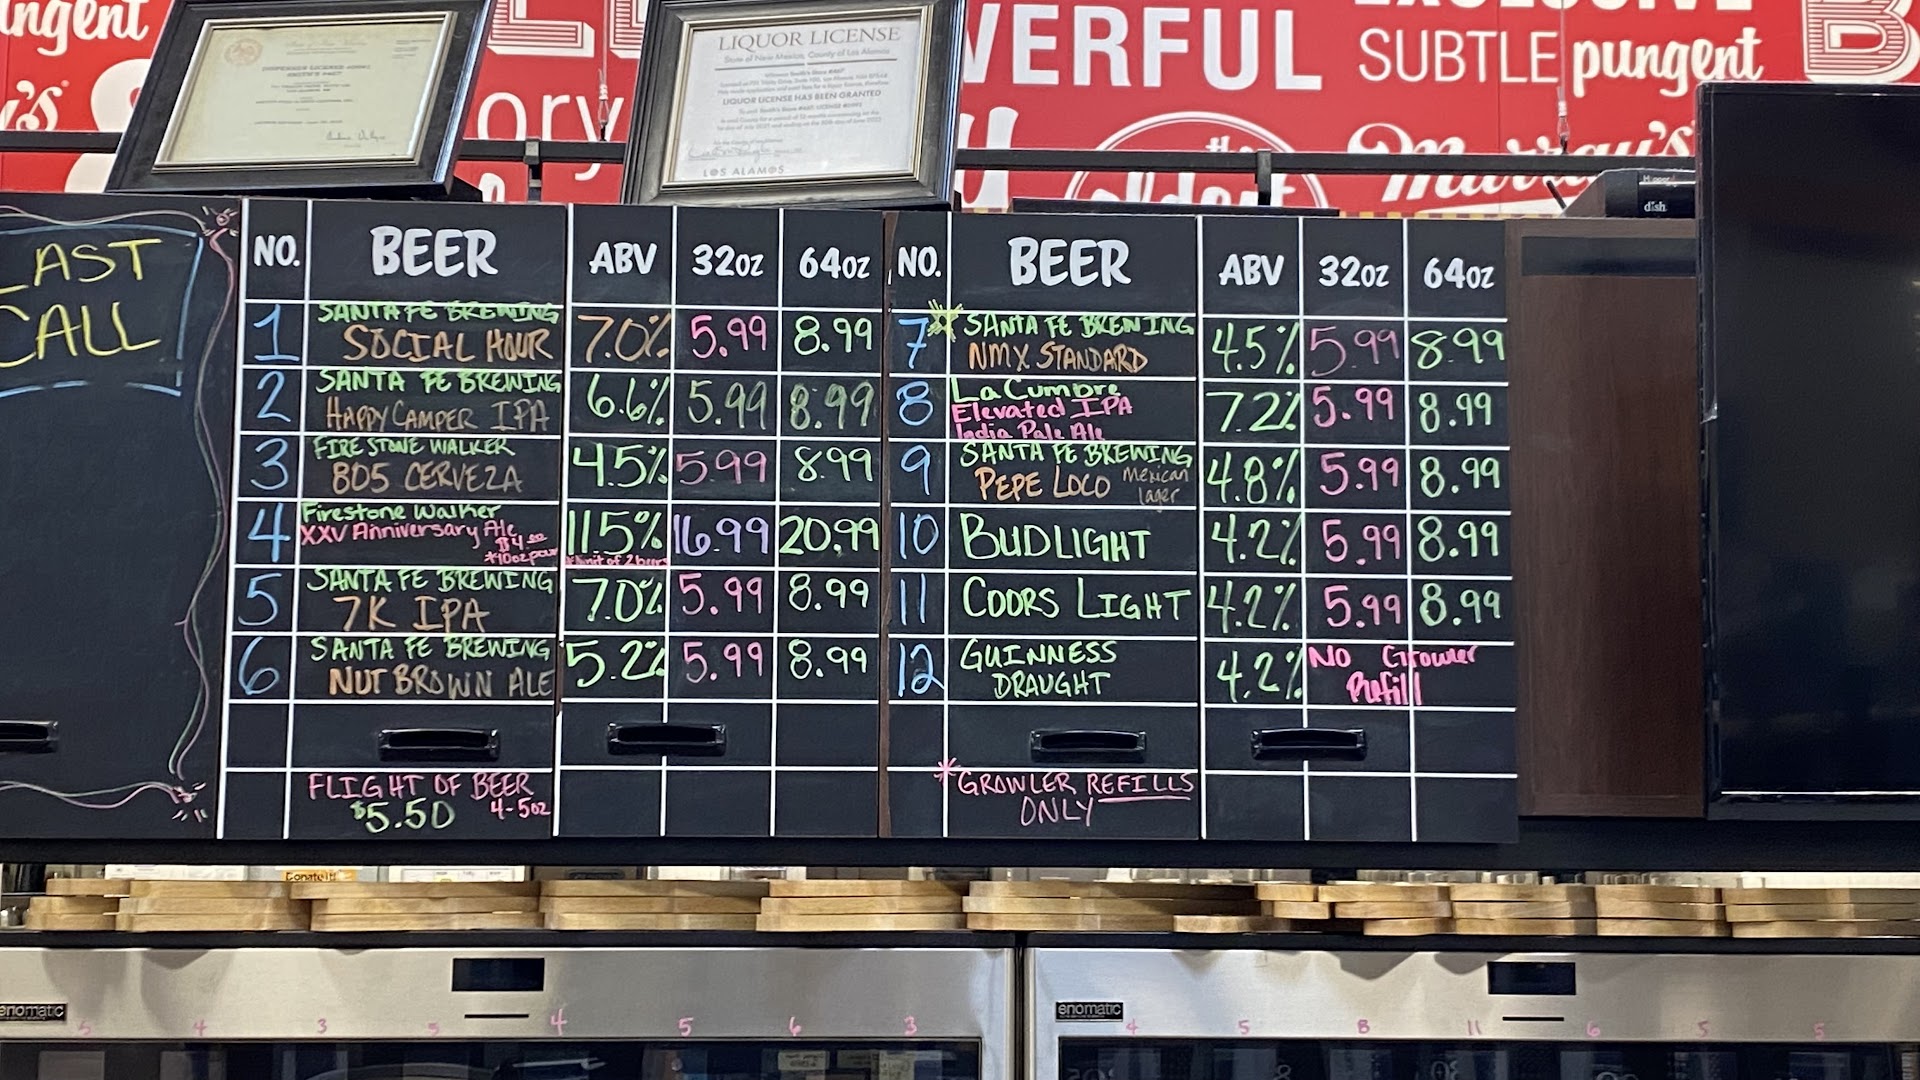 ngent
VERFUL
EXCLUSIVE
SUBTLE pungent
B
y's
ory
Murray's
LIQUOR LICENSE
State of New Mexico, County of Los Alamos
LIQUOR LICENSE HAS BEEN GRANTED
LOS ALAMOS
dish
LAST
CALL
NO. BEER ABV 32oz 64oz
1 SANTA FE BREWING
SOCIAL HOUR 7.0% 5.99 8.99
2 SANTA FE BREWING
HAPPY CAMPER IPA 6.6% 5.99 8.99
3 FIRESTONE WALKER
805 CERVEZA 4.5% 5.99 8.99
4 Firestone Walker
XXV Anniversary Ale 11.5% 16.99 20.99
$4.00
*10oz pour *limit of 2 beers
5 SANTA FE BREWING
7K IPA 7.0% 5.99 8.99
6 SANTA FE BREWING
NUT BROWN ALE 5.2% 5.99 8.99
FLIGHT OF BEER
$5.50 4-5oz
NO. BEER ABV 32oz 64oz
7 SANTA FE BREWING
NMX STANDARD 4.5% 5.99 8.99
8 La Cumbre
Elevated IPA
India Pale Ale 7.2% 5.99 8.99
9 SANTA FE BREWING
PEPE LOCO Mexican
lager 4.8% 5.99 8.99
10 BUDLIGHT 4.2% 5.99 8.99
11 COORS LIGHT 4.2% 5.99 8.99
12 GUINNESS
DRAUGHT 4.2% NO Growler
Refill
*GROWLER REFILLS
ONLY
Donate it!
enomatic
5 4 3 5 4 5 6 3
enomatic
4 5 8 11 6 5 5